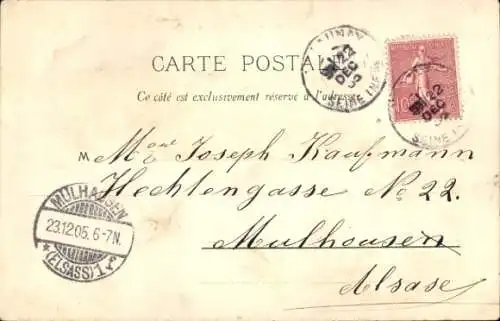 CARTE POSTALE
Ce côté est exclusivement réservé à l'adresse
22
DEC
SEINE INF
10
22
DEC
SEINE INF
M Joseph Kaufmann
Hechtengasse No 22.
Mulhousen
Alsase
MÜLHAUSEN
23.12.05. 6-7N.
(ELSASS) 1